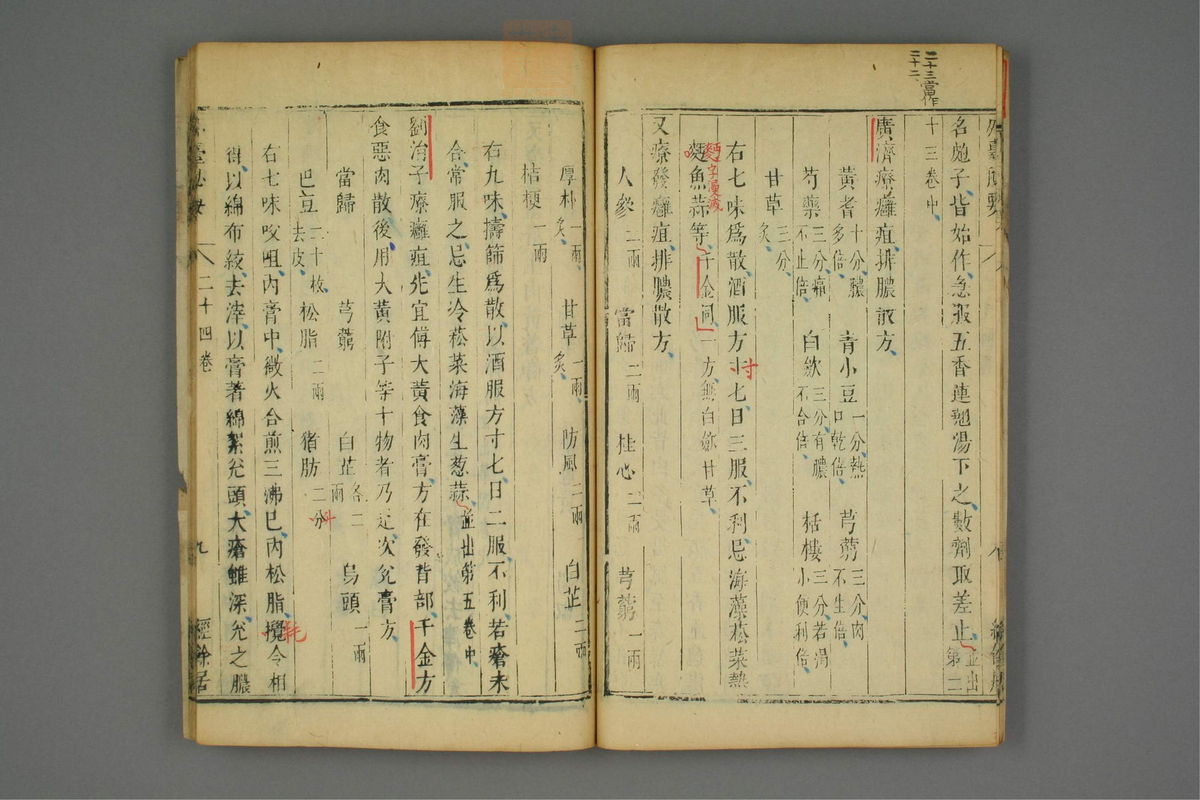 二十三當作
二十二
名顱子皆始作急服五香連翹湯下之數劑取差止並出第二
十三卷中
廣濟療癰疽排膿散方
黃耆十分膿多倍 青小豆一分熱口乾倍 芎藭三分肉不生倍
芍藥三分痛不止倍 白斂三分有膿不合倍 栝樓三分若渴小便利倍
甘草三分炙
右七味為散酒服方寸七日三服不利忌海藻菘菜熱
寸
麪魚蒜等千金同一方無白斂甘草
麪字漫滅
又療發癰疽排膿散方
人參二兩 當歸二兩 桂心二兩 芎藭一兩
厚朴一兩炙 甘草一兩炙 防風二兩 白芷二兩
桔梗一兩
右九味擣篩為散以酒服方寸七日二服不利若瘡未
合常服之忌生冷菘菜海藻生葱蒜並出第五卷中
劉涓子療癰疽先宜傅大黃食肉膏方在發背部千金方
食惡肉散後用大黃附子等十物者乃定次兊膏方
當歸 芎藭 白芷各二兩 烏頭一兩
巴豆二十枚去皮 松脂二兩 猪肪二分
升
右七味㕮咀內膏中微火合煎三沸巳內松脂攪令相
耗
得以綿布絞去滓以膏著綿絮兊頭大瘡雖深兊之膿
外臺秘要 二十四卷 九 經餘居